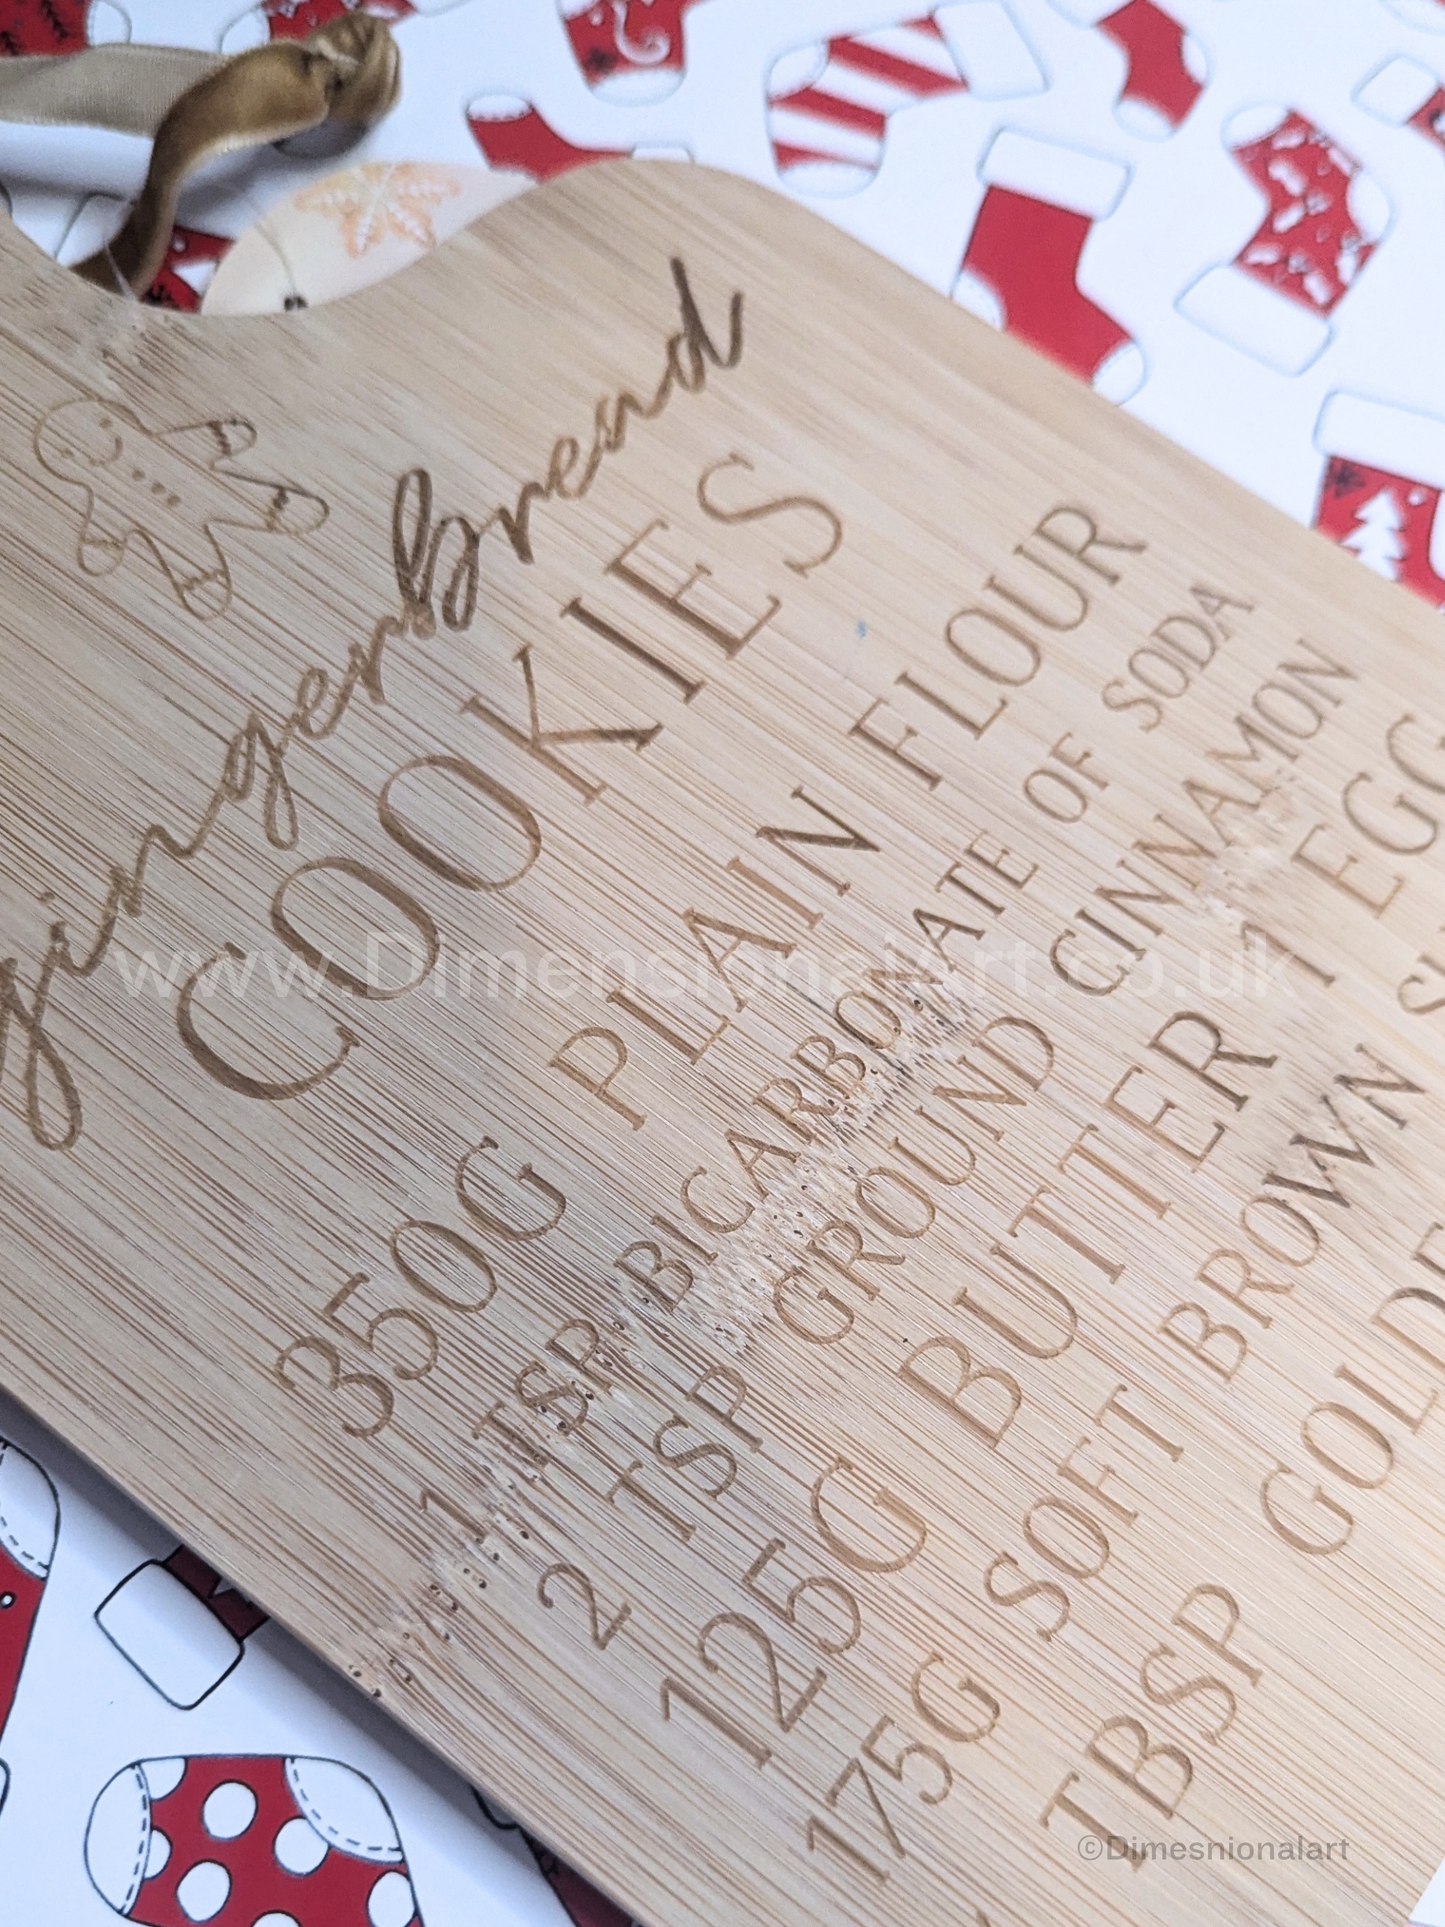 gingerbread
COOKIES
350G PLAIN FLOUR
1 TSP BICARBONATE OF SODA
2 TSP GROUND CINNAMON
125G BUTTER 1 EGG
175G SOFT BROWN
TBSP GOLDE
www.DimensionalArt.co.uk
©Dimesnionalart